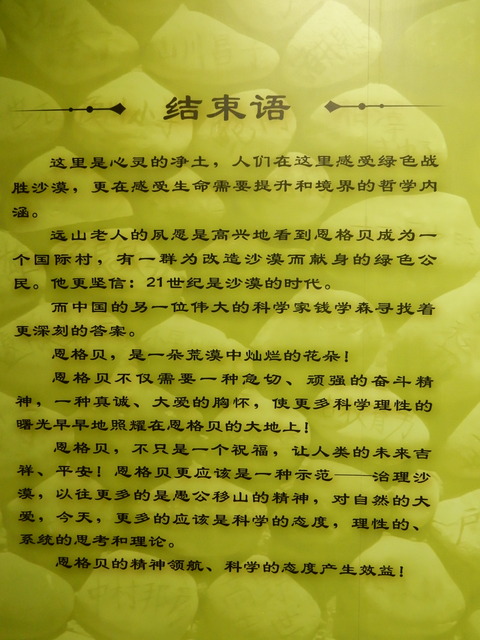 结束语
这里是心灵的净土，人们在这里感受绿色战
胜沙漠，更在感受生命需要提升和境界的哲学内
涵。
远山老人的夙愿是高兴地看到恩格贝成为一
个国际村，有一群为改造沙漠而献身的绿色公
民。他更坚信：21世纪是沙漠的时代。
而中国的另一位伟大的科学家钱学森寻找着
更深刻的答案。
恩格贝，是一朵荒漠中灿烂的花朵！
恩格贝不仅需要一种急切、顽强的奋斗精
神，一种真诚、大爱的胸怀，使更多科学理性的
曙光早早地照耀在恩格贝的大地上！
恩格贝，不只是一个祝福，让人类的未来吉
祥、平安！恩格贝更应该是一种示范——治理沙
漠，以往更多的是愚公移山的精神，对自然的大
爱，今天，更多的应该是科学的态度，理性的、
系统的思考和理论。
恩格贝的精神领航、科学的态度产生效益！